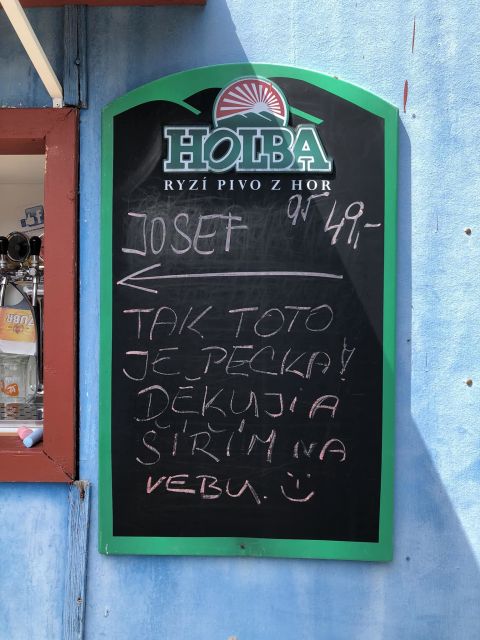 HOLBA
RYZÍ PIVO Z HOR
JOSEF 0,5 49,-
TAK TOTO
JE PECKA!
DĚKUJI A
ŠÍŘÍM NA
VEBU. :)